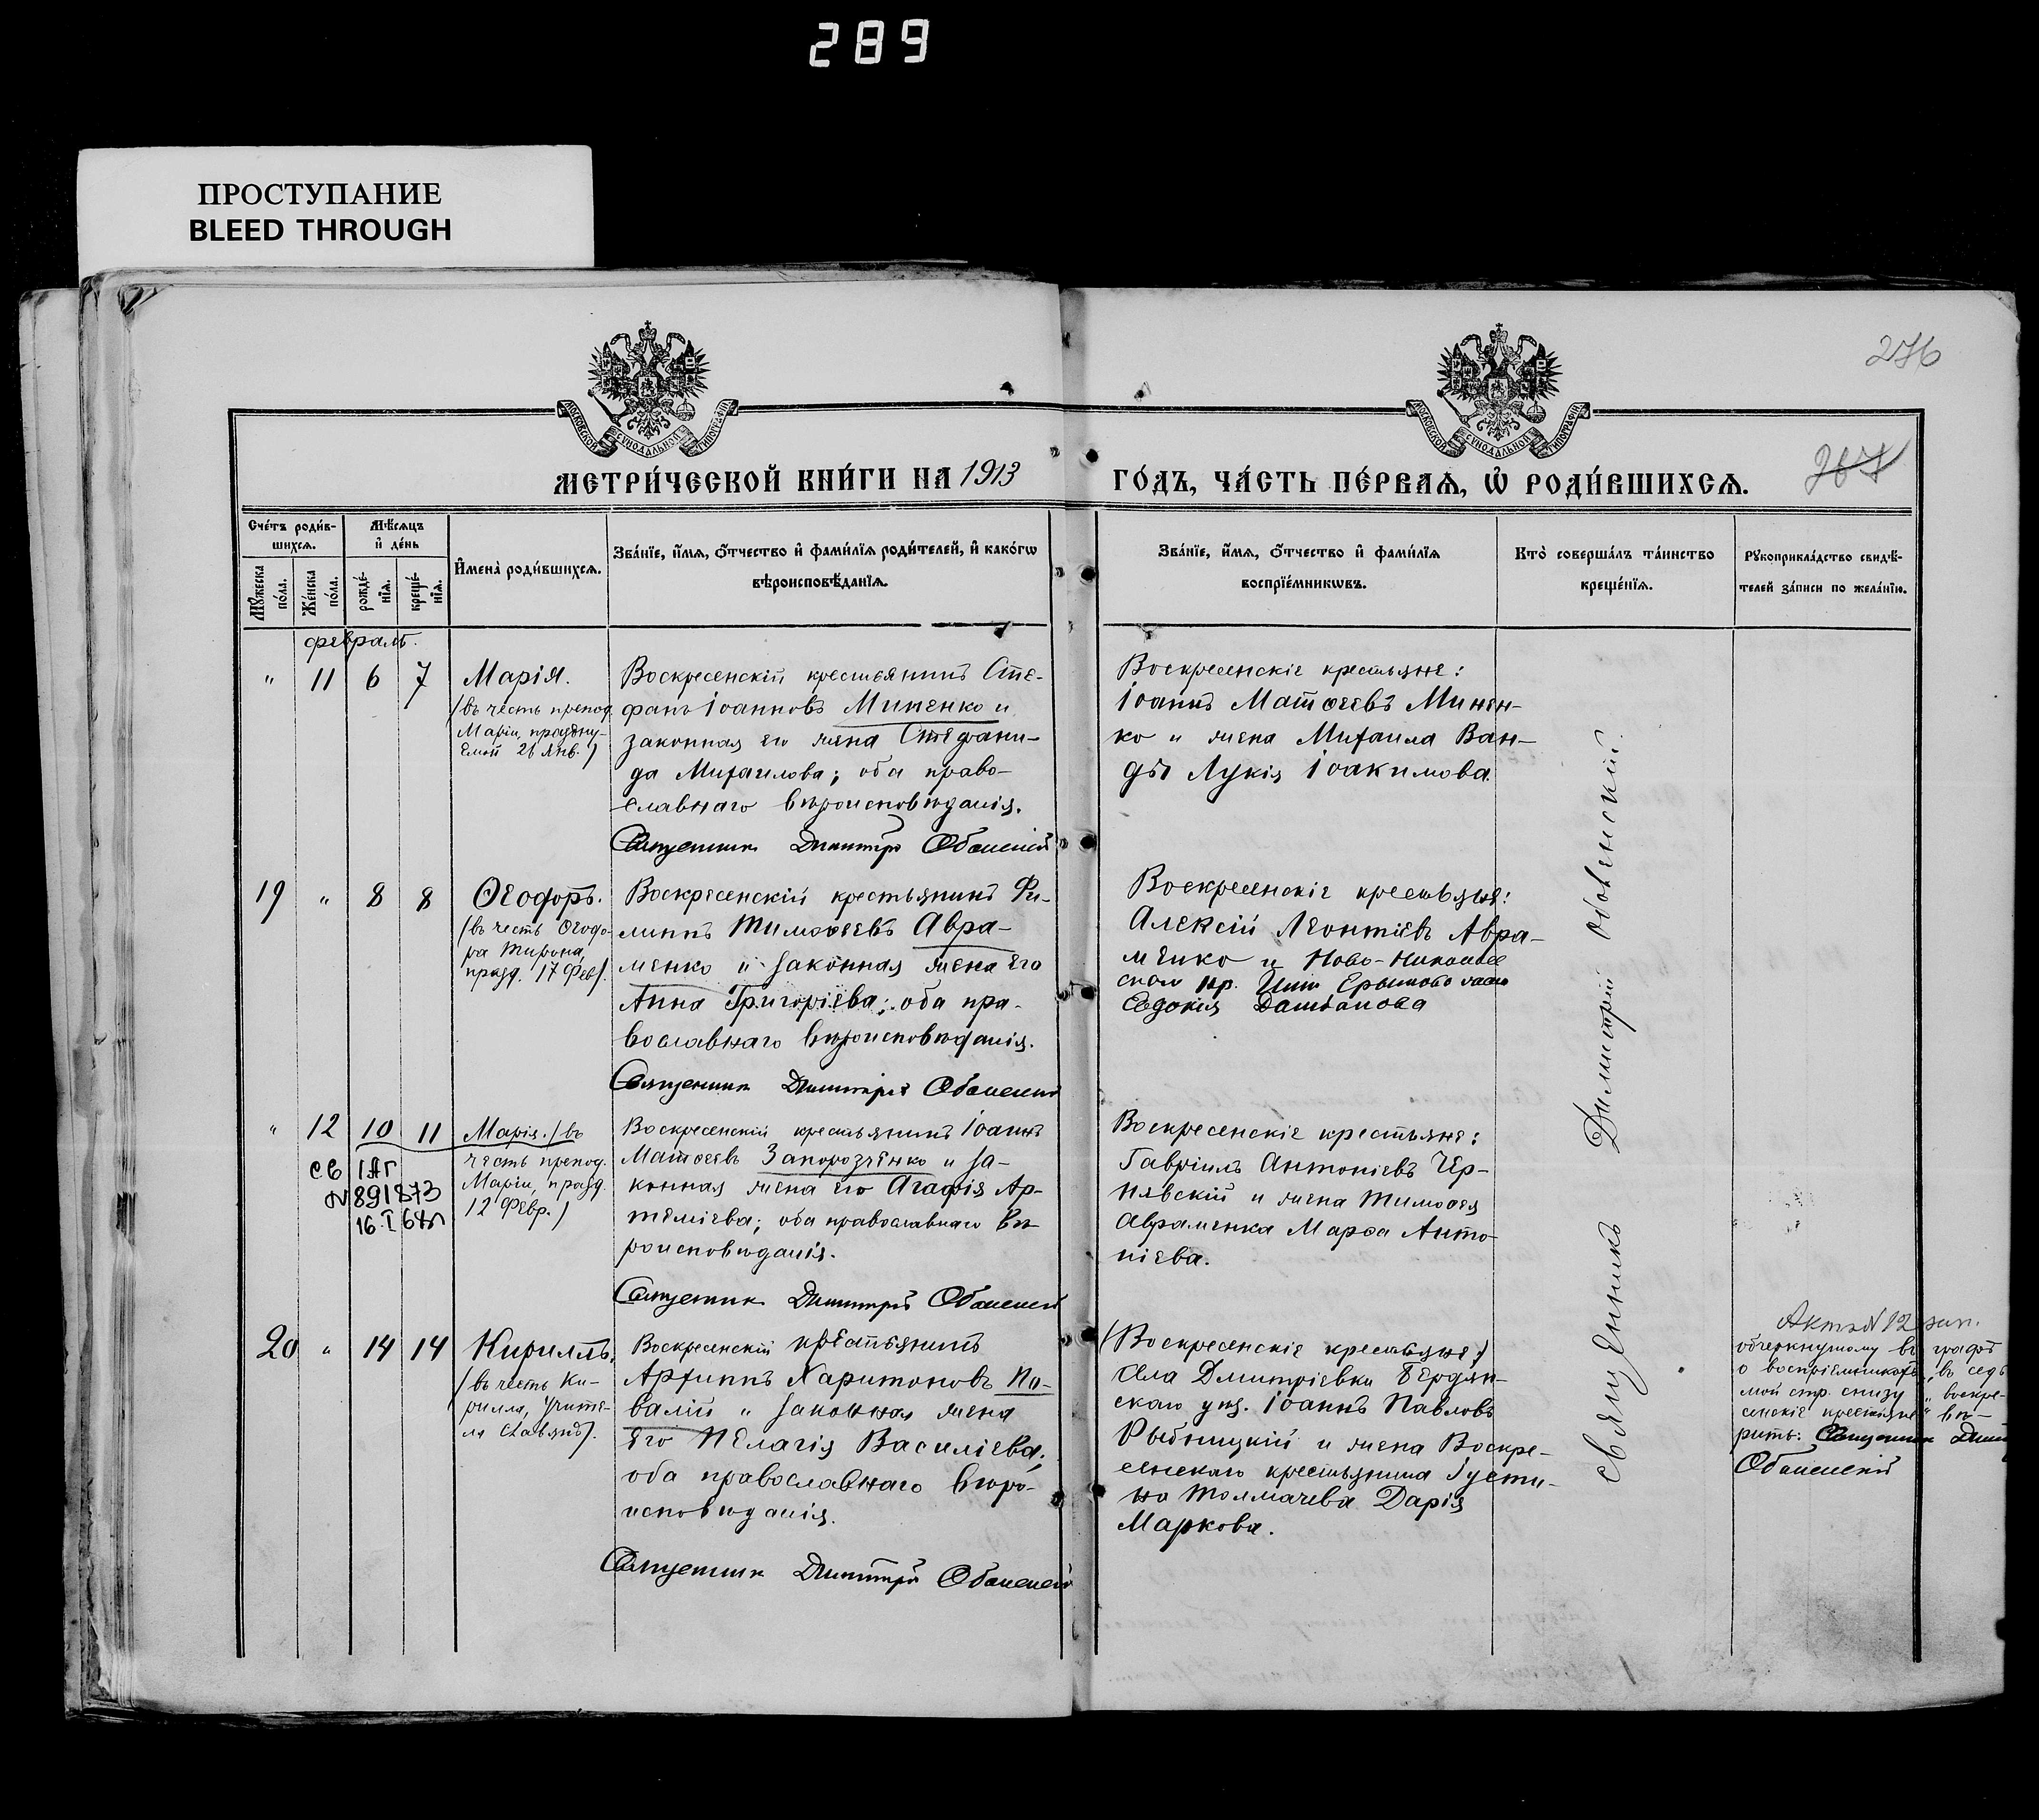 289
ПРОСТУПАНИЕ
BLEED THROUGH
276
МОСКОВСКОЙ СѴНОДАЛЬНОЙ ТИПОГРАФІИ
МОСКОВСКОЙ СѴНОДАЛЬНОЙ ТИПОГРАФІИ
МЕТРИ́ЧЕСКОЙ КНИ́ГИ НА 1913
ГО́ДЪ, ЧА́СТЬ ПЕ́РВАѦ, Ѡ҆ РОДИ́ВШИХСѦ.
267
Сче́тъ роди́в-
шихсѧ.
Мѣ́сѧцъ
и҆ де́нь
Мꙋ́жеска
по́ла.
Же́нска
по́ла.
рожде́-
нїѧ.
креще́-
нїѧ.
И҆мена̀ роди́вшихсѧ.
Зва́нїе, и҆́мѧ, о҆́тчество и҆ фами́лїѧ роди́телей, и҆ како́гѡ
вѣроисповѣ́данїѧ.
Зва́нїе, и҆́мѧ, о҆́тчество и҆ фами́лїѧ
воспрїе́мникѡвъ.
Кто̀ соверша́лъ та́инство
креще́нїѧ.
Рꙋкоприкла́дство свидѣ́-
телей за́писи по жела́нїю.
февраль.
" 11 6 7
Марія.
(въ честь препод.
Маріи, праздну-
емой 26 Янв.)
Воскресенскій крестьянинъ Сте-
фанъ Іоанновъ Миненко и
законная его жена Стефани-
да Михаилова; оба право-
славнаго вѣроисповѣданія.
Священникъ Димитрій Оболенскій
Воскресенскіе крестьяне:
Іоаннъ Матѳеевъ Минен-
ко и жена Михаила Ван-
ды Лукія Іоакимова.
19 " 8 8
Ѳеодоръ.
(въ честь Ѳеодо-
ра Тирона,
празд. 17 Фев).
Воскресенскій крестьянинъ Фи-
липпъ Тимоѳеевъ Авра-
менко и законная жена его
Анна Григоріева; оба пра-
вославнаго вѣроисповѣданія.
Священникъ Димитрій Оболенскій
Воскресенскіе крестьяне:
Алексій Леонтіевъ Авра-
менко и Ново-Николаев
ской кр.
Евдокія
" 12 10 11
Марія. (въ
честь препод.
Маріи, празд.
12 Февр.)
св IАГ
№891873
16.I 64г
Воскресенскій крестьянинъ Іоаннъ
Матѳеевъ Запорозченко и за-
конная жена его Агафія Ар-
теміева; оба православнаго вѣ-
роисповѣданія.
Священникъ Димитрій Оболенскій
Воскресенскіе крестьяне:
Гавріилъ Антоніевъ Чер-
нявскій и жена Тимоѳея
Авраменка Марѳа Анто-
ніева.
20 " 14 14
Кириллъ.
(въ честь Ки-
рилла, Учите-
ля Славянъ).
Воскресенскій крестьянинъ
Архиппъ Харитоновъ По-
валій и законная жена
его Пелагія Василіева;
оба православнаго вѣро-
исповѣданія.
Священникъ Димитрій Оболенскій
(Воскресенскіе крестьяне:)
села Дмитріевки Бердян-
скаго уѣз. Іоаннъ Павловъ
Рыбницкій и жена Воскре-
сенскаго крестьянина Густи-
на Толмачева Дарія
Маркова.
Священникъ Димитрій Оболенскій.
графѣ
о воспріемникахъ, въ седь
мой стр. снизу "воскре-
сенскіе крестьяне" вѣ-
рить: Священникъ
Оболенскій